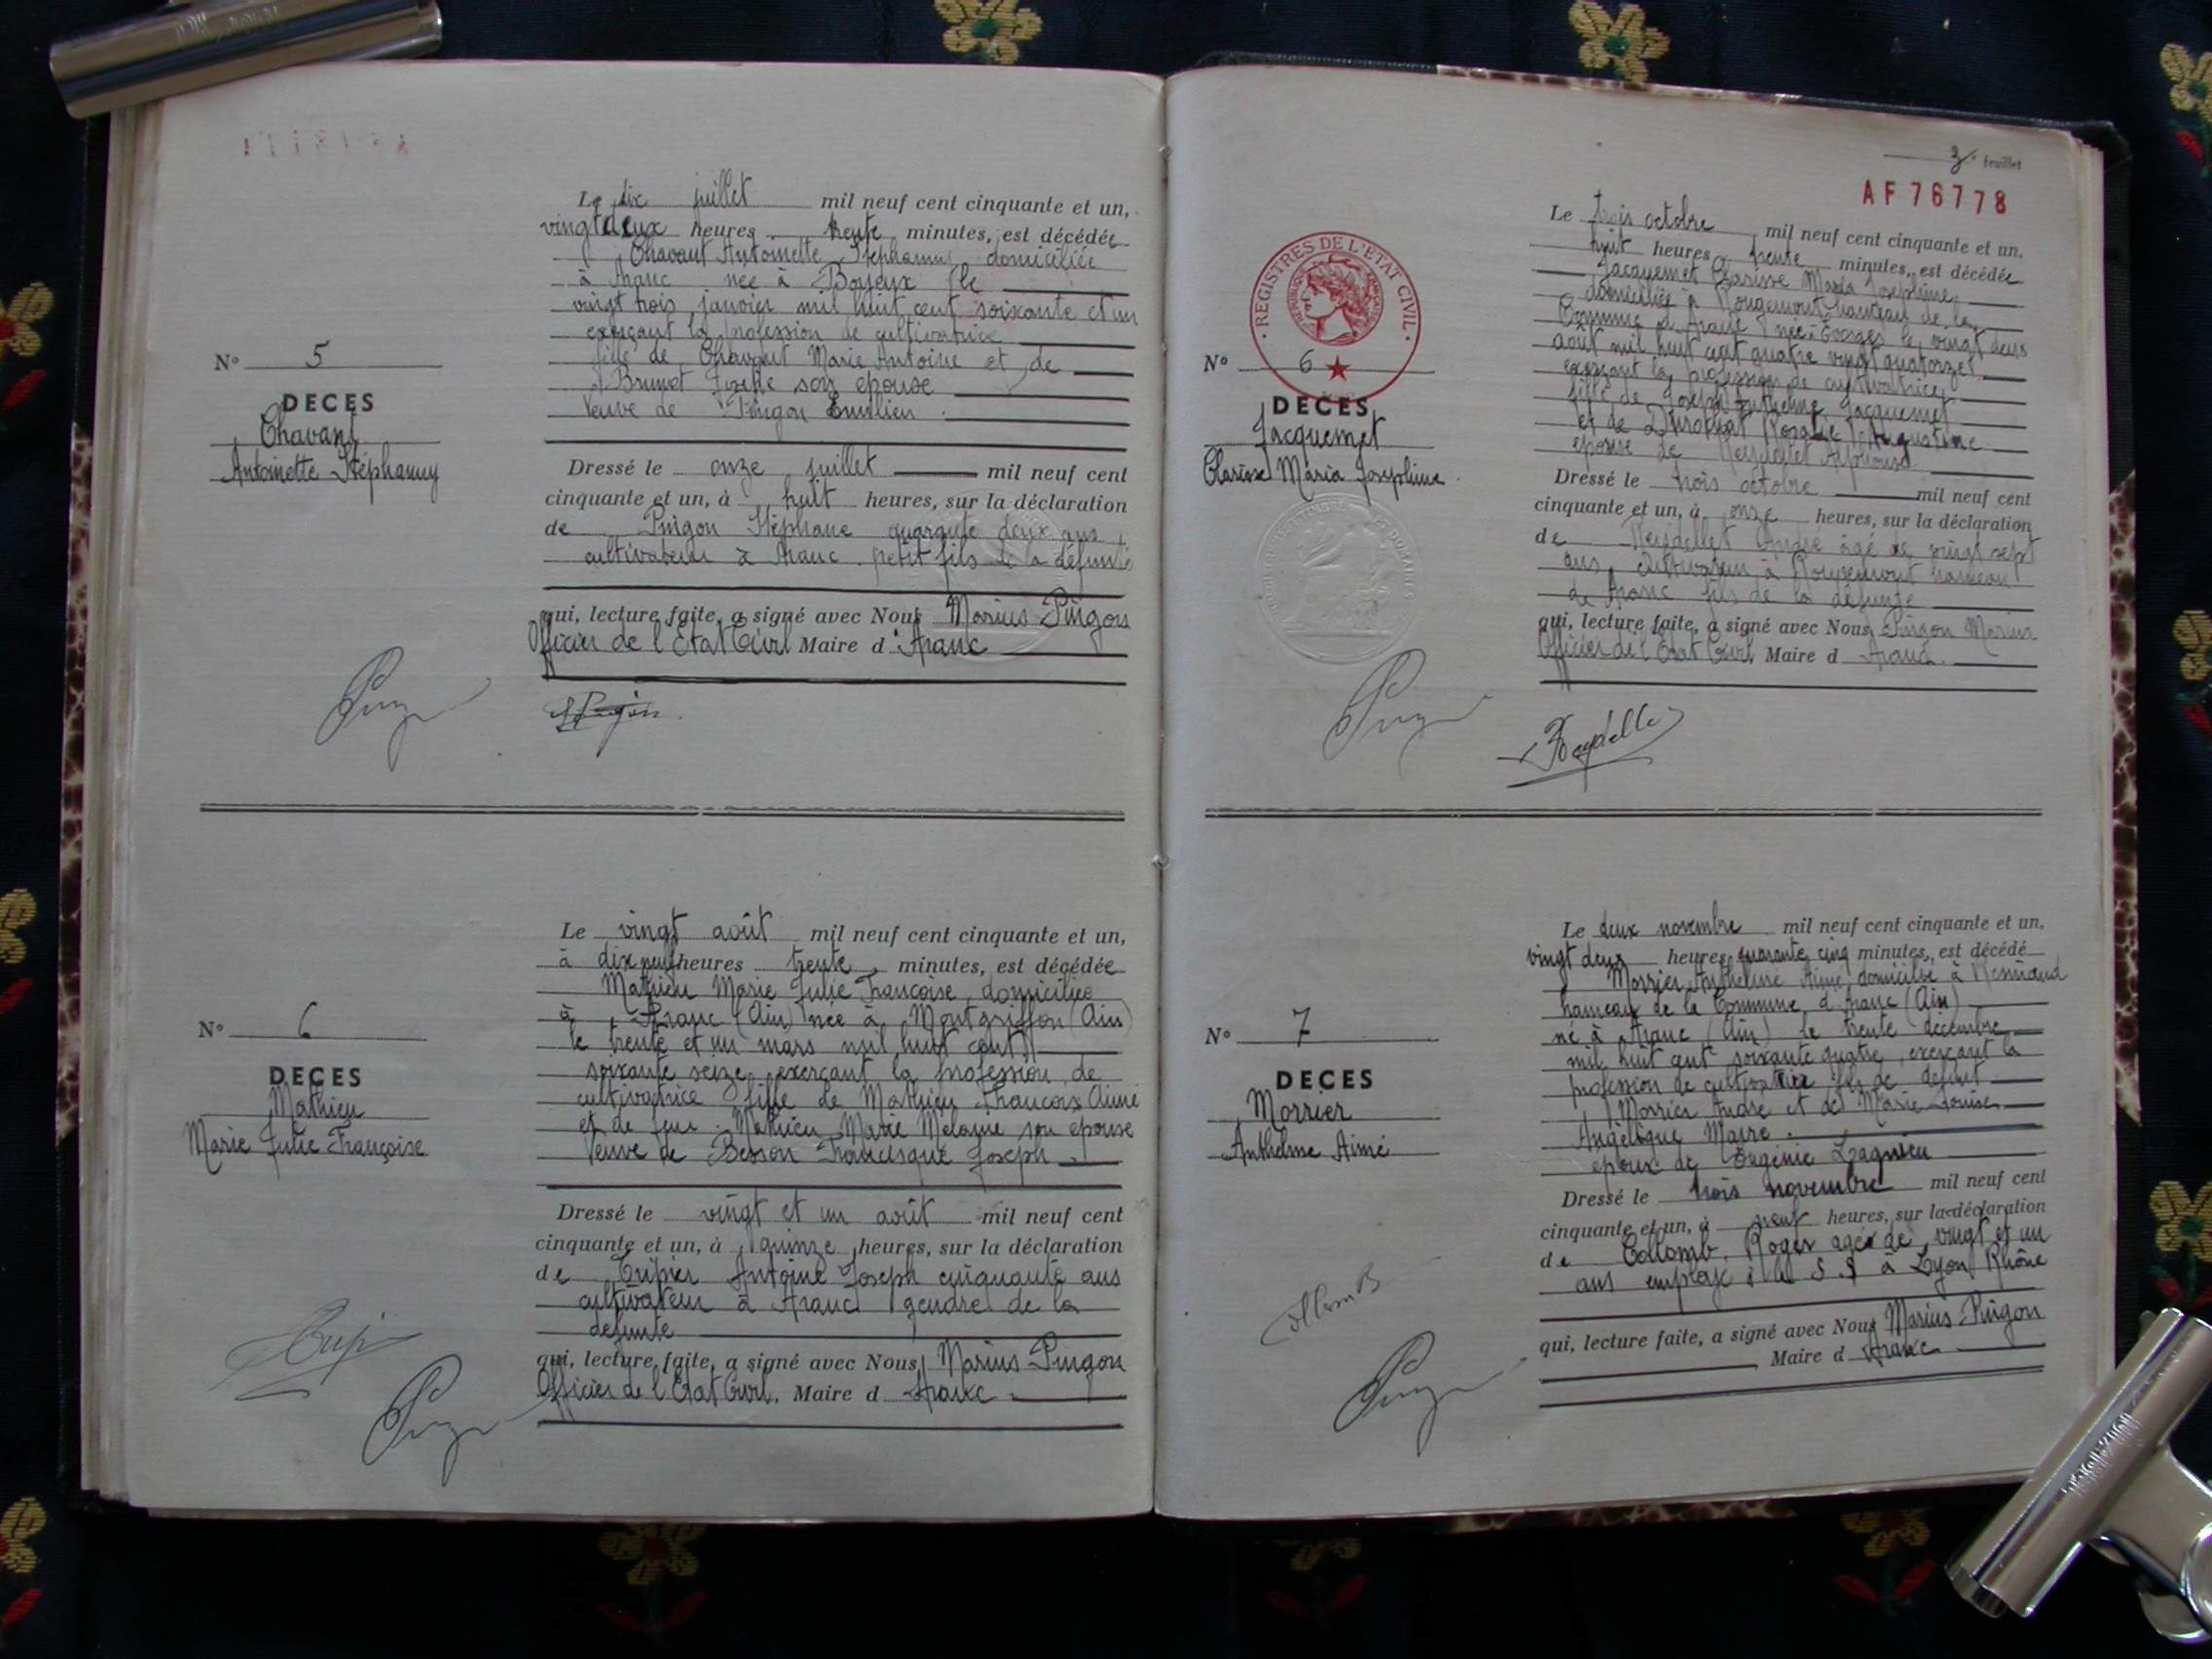 Le dix juillet mil neuf cent cinquante et un,
vingt deux heures trente minutes, est décédée
Chavant Antoinette Stéphanny domiciliée
à Aranc née à Boyeux le
vingt trois janvier mil huit cent soixante et un
exerçant la profession de cultivatrice
fille de Chavant Marie Antoine et de
Brunet Josette son épouse
Veuve de Pingon Emilien
N° 5
DECES
Chavant
Antoinette Stéphanny
Dressé le onze juillet mil neuf cent
cinquante et un, à huit heures, sur la déclaration
de Pingon Stéphane quarante deux ans
cultivateur à Aranc petit fils de la défunte
qui, lecture faite, a signé avec Nous Marius Pingon
Officier de l'Etat Civil Maire d'Aranc
N° 6
DECES
Mathieu
Marie Julie Françoise
Le vingt août mil neuf cent cinquante et un,
à dix neuf heures trente minutes, est décédée
Mathieu Marie Julie Françoise domiciliée
à Aranc (Ain) née à Montgriffon (Ain)
le trente et un mars mil huit cent
soixante seize exerçant la profession de
cultivatrice fille de Mathieu François Aimé
et de feue Mathieu Marie Mélanie son épouse
Veuve de Besson Francisque Joseph
Dressé le vingt et un août mil neuf cent
cinquante et un, à quinze heures, sur la déclaration
de Tripier Antoine Joseph cinquante ans
cultivateur à Aranc gendre de la
défunte
qui, lecture faite, a signé avec Nous Marius Pingon
Officier de l'Etat Civil, Maire d Aranc
3e feuillet
AF76778
REGISTRES DE L'ÉTAT CIVIL
N° 6
DECES
Jacquemet
Clarisse Maria Joséphine
Le trois octobre mil neuf cent cinquante et un,
huit heures trente minutes, est décédée
Jacquemet Clarisse Maria Joséphine
domiciliée à Rougemont hameau de la
Commune d'Aranc née le vingt deux
août mil huit cent quatre vingt quatorze
exerçant la profession de cultivatrice
fille de Joseph Anthelme Jacquemet
et de Rosalie Augustine
épouse de Reydellet Alphonse
Dressé le trois octobre mil neuf cent
cinquante et un, à onze heures, sur la déclaration
de Reydellet André âgé de vingt sept
ans, cultivateur à Rougemont hameau
de Aranc fils de la défunte
qui, lecture faite, a signé avec Nous, Pingon Marius
Officier de l'Etat Civil, Maire d Aranc.
N° 7
DECES
Morrier
Anthelme Aimé
Le deux novembre mil neuf cent cinquante et un,
vingt deux heures quarante cinq minutes, est décédé
Morrier Anthelme Aimé domicilié à Résinand
hameau de la Commune d'Aranc (Ain)
né à Aranc (Ain) le trente décembre
mil huit cent soixante quatre, exerçant la
profession de cultivatrice fils de défunt
Morrier André et de Marie Louise
Angélique Maire
époux de Eugénie Lagnieu
Dressé le trois novembre mil neuf cent
cinquante et un, à neuf heures, sur la déclaration
de Collomb Roger agé de vingt et un
ans employé à la S S à Lyon Rhône
qui, lecture faite, a signé avec Nous Marius Pingon
Maire d Aranc